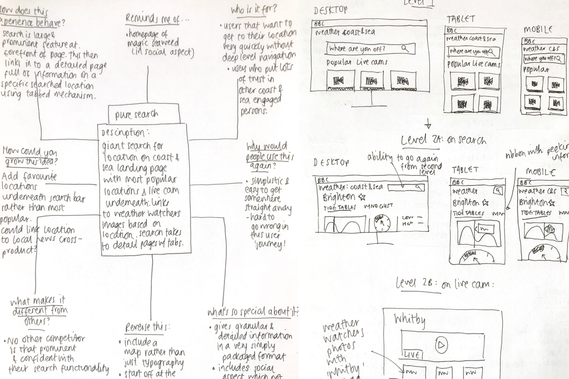 How does this
experience behave?
search is large &
prominent feature at
forefront of page this then
links it to a detailed page
full of information on a
specific searched location
using tabbed mechanism.
Reminds me of...
homepage of
magic seaweed
(in social aspect)
who is it for?
• users that want to
get to their location
very quickly without
deep level navigation
• users who put lots
of trust in
other coast &
sea engaged
persons.
pure search
Description:
giant search for
location on coast &
sea landing page
with most popular
locations & live cam
underneath. links
to weather watchers
images based on
location. search takes
to detail pages w/ tabs.
How could you
grow this idea?
Add favourite
locations
underneath search bar
rather than most
popular.
could link location
to local news cross-
product?
Why would
people use this
again?
• simplistic &
easy to get
somewhere
straight away
- hard to
go wrong in
this user
journey!
what makes it
different from
others?
• No other competitor
is that prominent
& confident with
their search functionality
Reverse this:
• include a
map rather than
just typography
• start off at the
what's so special about it?
• gives granular &
detailed information
in a very simply
packaged format
• includes social
aspect which not
Level 1
DESKTOP
BBC
weather: coast & sea
where are you off?
popular live cams
TABLET
BBC
weather coast & sea
where are you off?
popular live cams
MOBILE
BBC
weather C&S
where you off?
popular
Level 2A: on search
ability to go again
from second
level
DESKTOP
BBC
weather: coast & sea
Brighton
TIDE TABLES WIND CAST
TABLET
BBC
weather
Brighton
TIDE TABLES
MOBILE
BBC
weather C&S
Brighton
TIDE TABLES
ribbon with
Level 2B: on live cam:
Whitby
LIVE
weather
watchers
photos
with
'whitby'